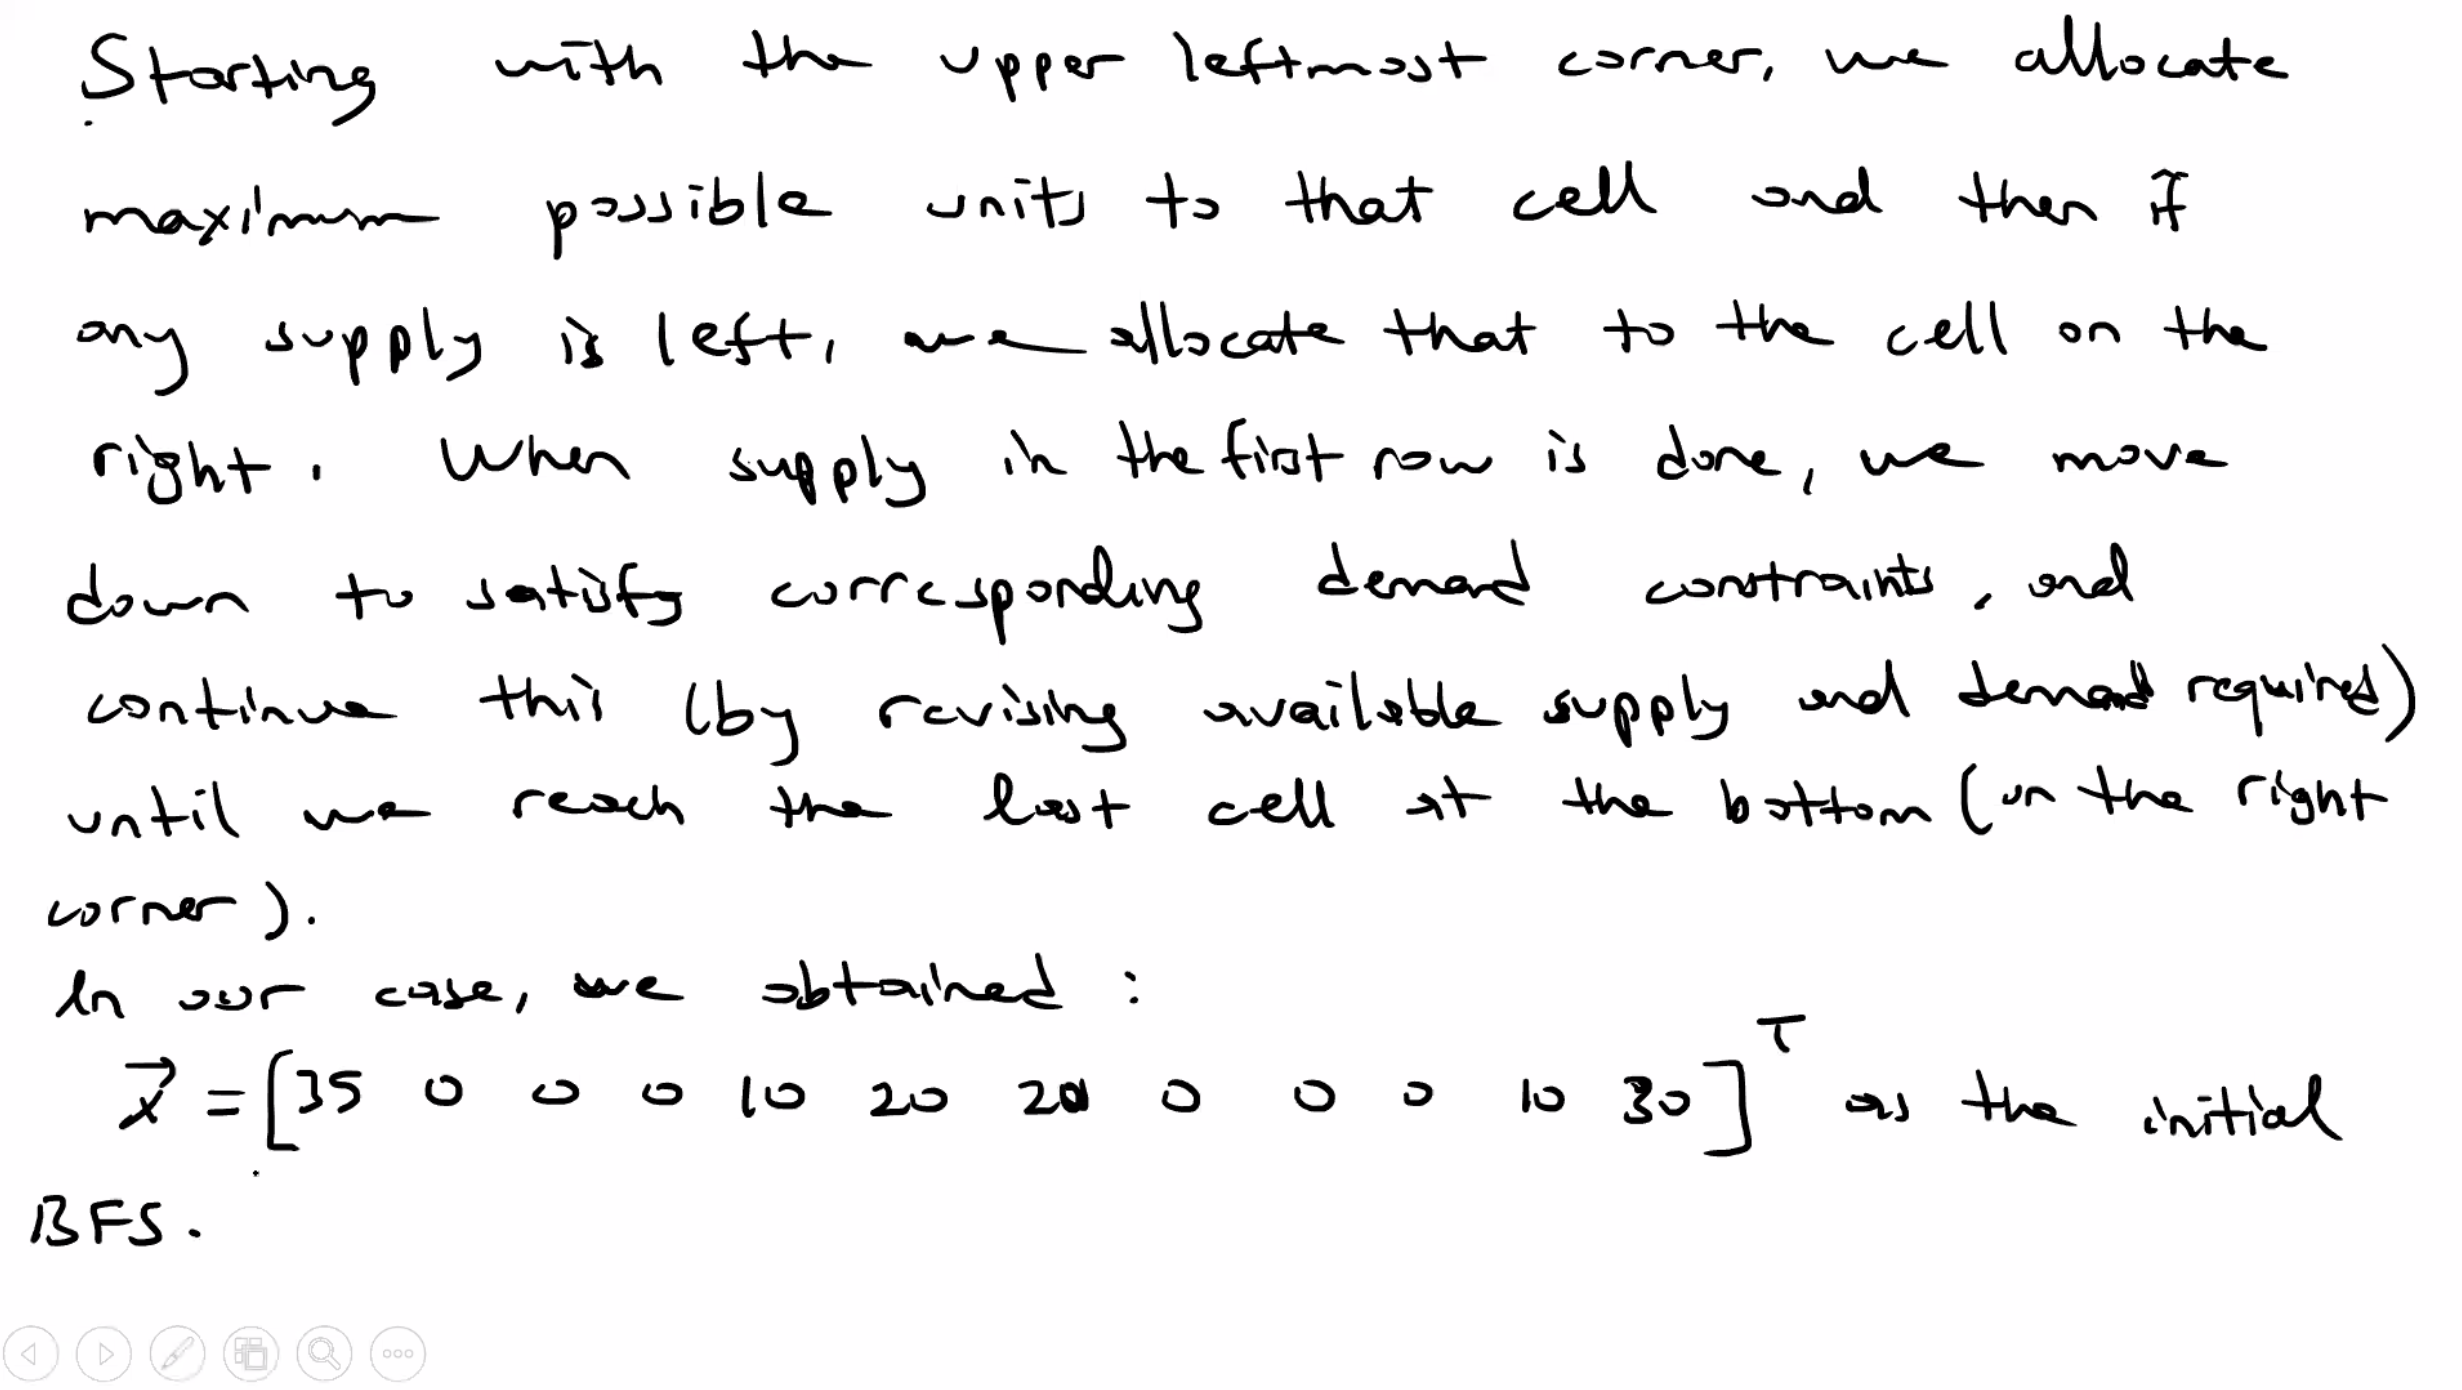 Starting with the upper leftmost corner, we allocate
maximum possible units to that cell and then if
any supply is left, we allocate that to the cell on the
right. When supply in the first row is done, we move
down to satisfy corresponding demand constraints, and
continue this (by revising available supply and demand required)
until we reach the last cell at the bottom (on the right
corner).
In our case, we obtained:
x⃗ = [35 0 0 0 10 20 20 0 0 0 10 30]ᵀ as the initial
BFS.